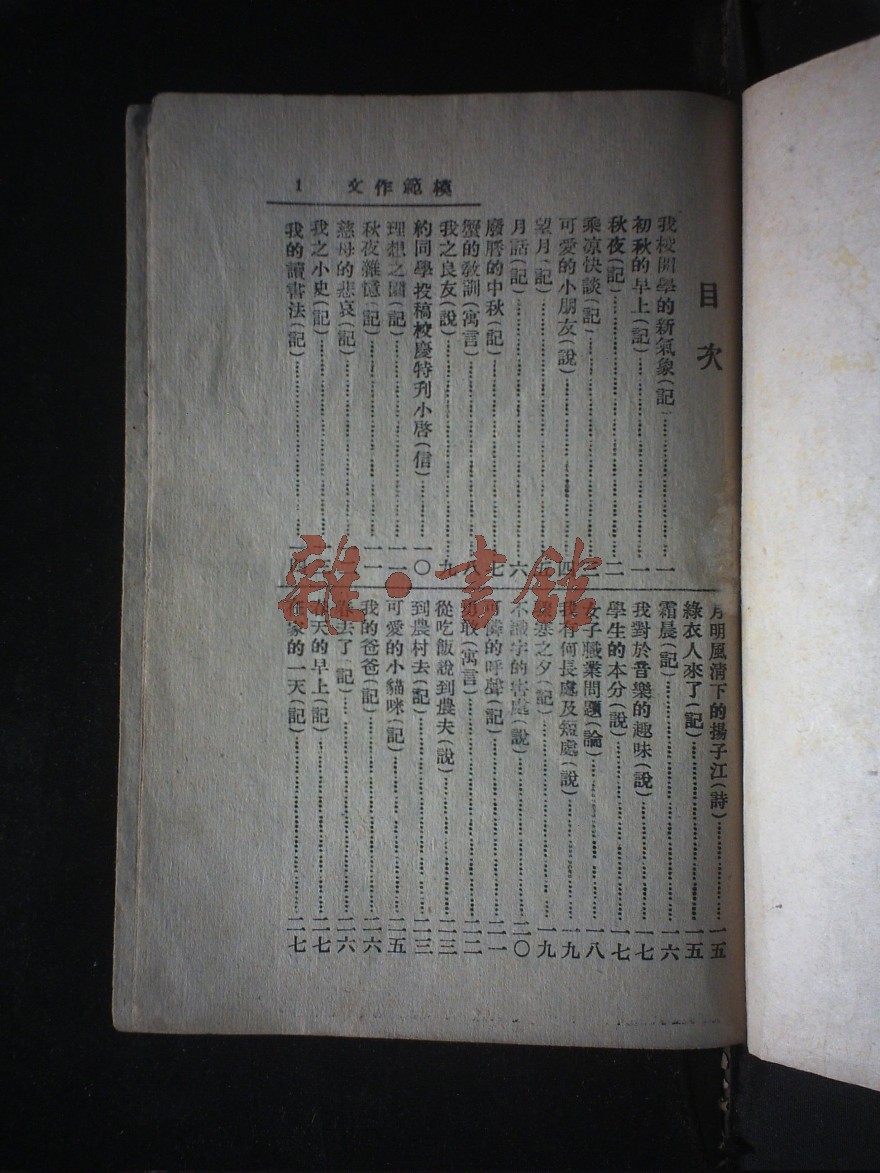 模範作文 1
目次
我校開學的新氣象(記)一
初秋的早上(記)一
秋夜(記)二
乘涼快談(記)三
可愛的小朋友(說)四
望月(記)五
月話(記)六
的中秋(記)七
蟹的教訓(寓言)八
我之良友(說)九
約同學投稿校慶特刋小啓(信)一〇
理想之園(記)一一
秋夜雜憶(記)一一
慈母的悲哀(記)一二
我之小史(記)一三
我的讀書法(記)一四
月明風清下的揚子江(詩)一五
綠衣人來了(記)一五
霜晨(記)一六
我對於音樂的趣味(說)一七
學生的本分(說)一七
女子職業問題(論)一八
我有何長處及短處(說)一九
寒之夕(記)一九
不識字的害處(說)二〇
可憐的呼聲(記)二一
勇敢(寓言)二二
從吃飯說到農夫(說)二三
到農村去(記)二三
可愛的小貓咪(記)二五
我的爸爸(記)二六
春去了(記)二六
春天的早上(記)二七
在家的一天(記)二七
雜·書館